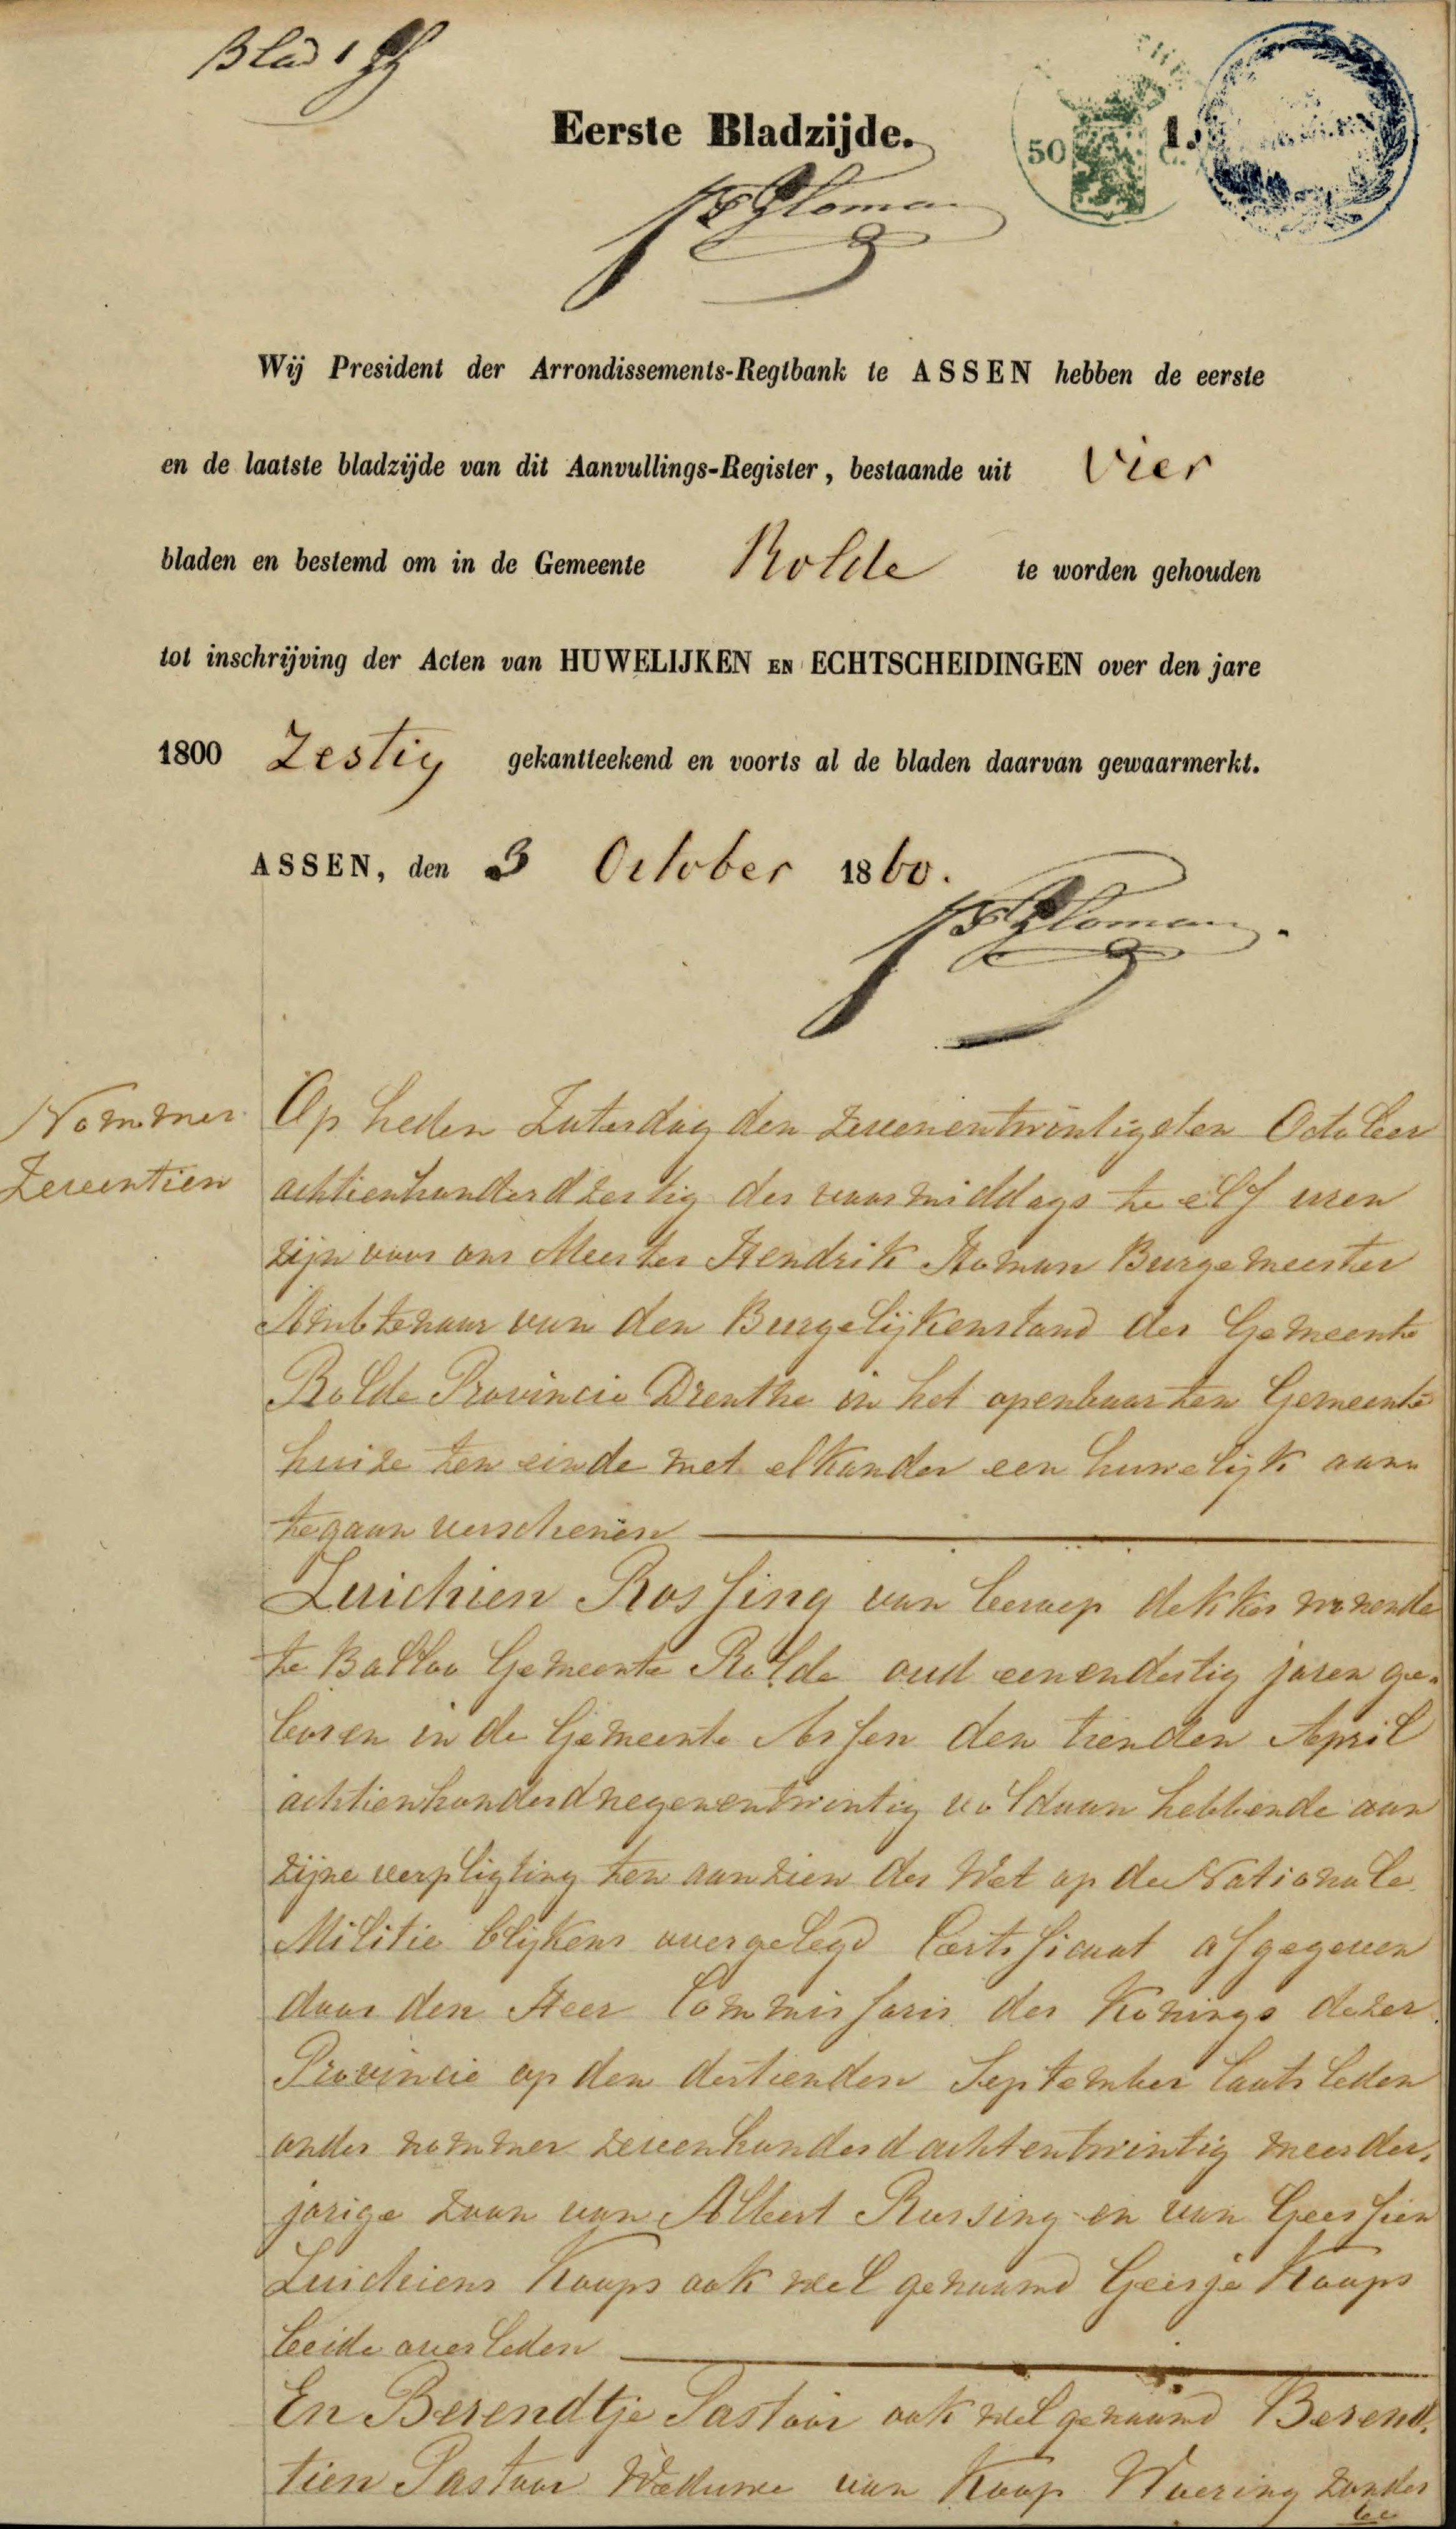 Blad 1
Eerste Bladzijde.
50 C.
1.
Wij President der Arrondissements-Regtbank te ASSEN hebben de eerste
en de laatste bladzijde van dit Aanvullings-Register, bestaande uit Vier
bladen en bestemd om in de Gemeente Rolde te worden gehouden
tot inschrijving der Acten van HUWELIJKEN EN ECHTSCHEIDINGEN over den jare
1800 Zestig gekantteekend en voorts al de bladen daarvan gewaarmerkt.
ASSEN, den 3 October 1860.
Nommer
Zeventien
Op heden Zaterdag den zevenentwintigsten October
achtienhonderdzestig des voormiddags te elf uren
zijn voor ons Meester Hendrik Homan Burgemeester
Ambtenaar van den Burgelijkenstand der Gemeente
Rolde Provincie Drenthe in het openbaar ten Gemeente
huize ten einde met elkander een huwelijk aan
tegaan verschenen
Luichien Rossing van beroep dekker wonende
te Balloo Gemeente Rolde oud eenendertig jaren ge-
boren in de Gemeente Assen den tienden April
achtienhonderdnegenentwintig voldaan hebbende aan
zijne verpligting ten aanzien der Wet op de Nationale
Militie blijkens overgelegd Certificaat afgegeven
door den Heer Commissaris des Konings dezer
Provincie op den dertienden September laatsleden
onder nommer zevenhonderdachtentwintig meerder-
jarige zoon van Albert Rossing en van Geessien
Luichiens Koops ook wel genaamd Geesje Koops
beide overleden
En Berendtje Pastoor ook wel genaamd Berend-
tien Pastoor Weduwe van Koop Woering zonder
be